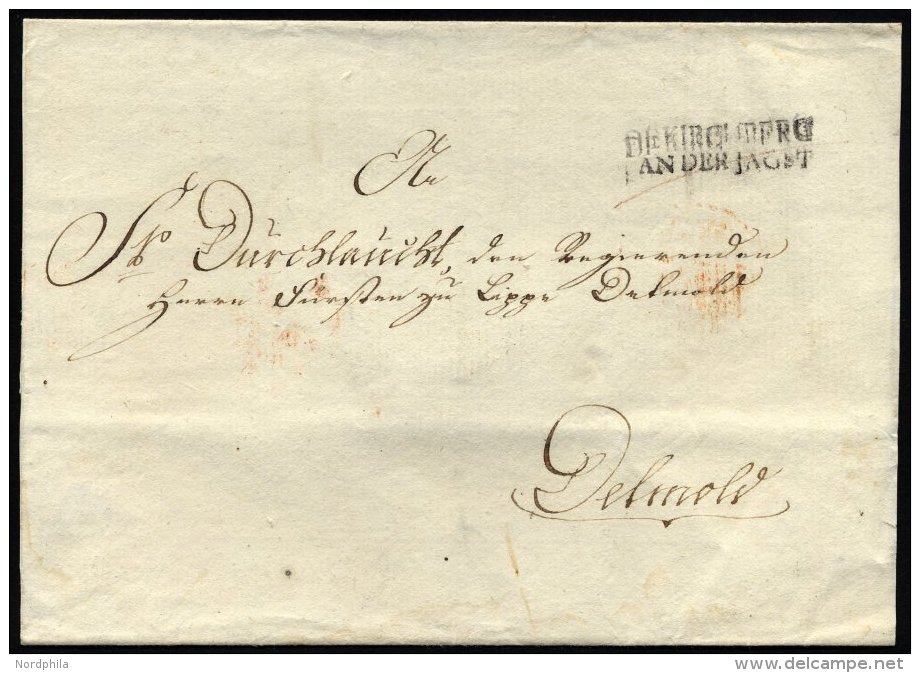 DE KIRCHBERG
AN DER JAGST
An
Sr Durchlaucht, den Regierenden
Herrn Fürsten zu Lippe Detmold
Detmold
Nordphila
www.delcampe.net